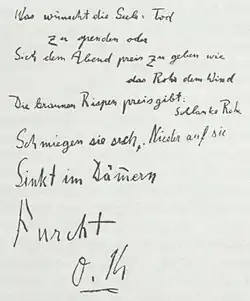 Was wünscht die Seele: Tod
zu spenden oder
Sich dem Abend preis zu geben wie
das Rohr dem Wind
Die braunen Rispen preisgibt:
Schlanke Rohr
Schmiegen sie sich, Nieder auf sie
Sinkt im Dämern
Furcht
O. K